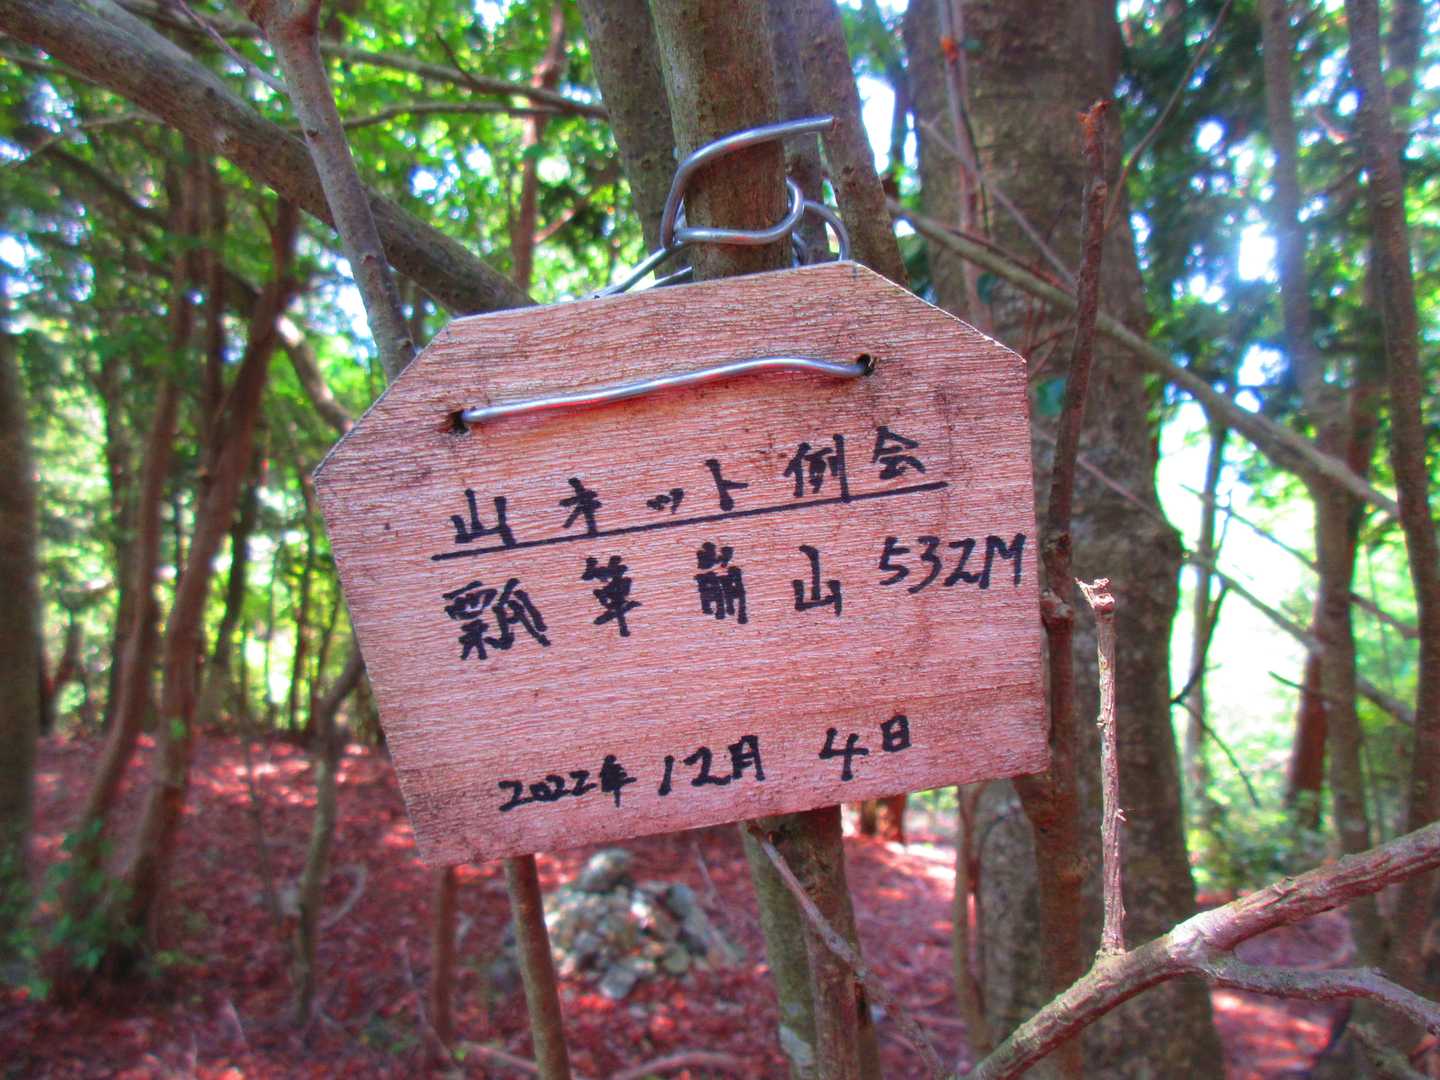 山ネット例会
瓢箪崩山 532M
2022年 12月 4日